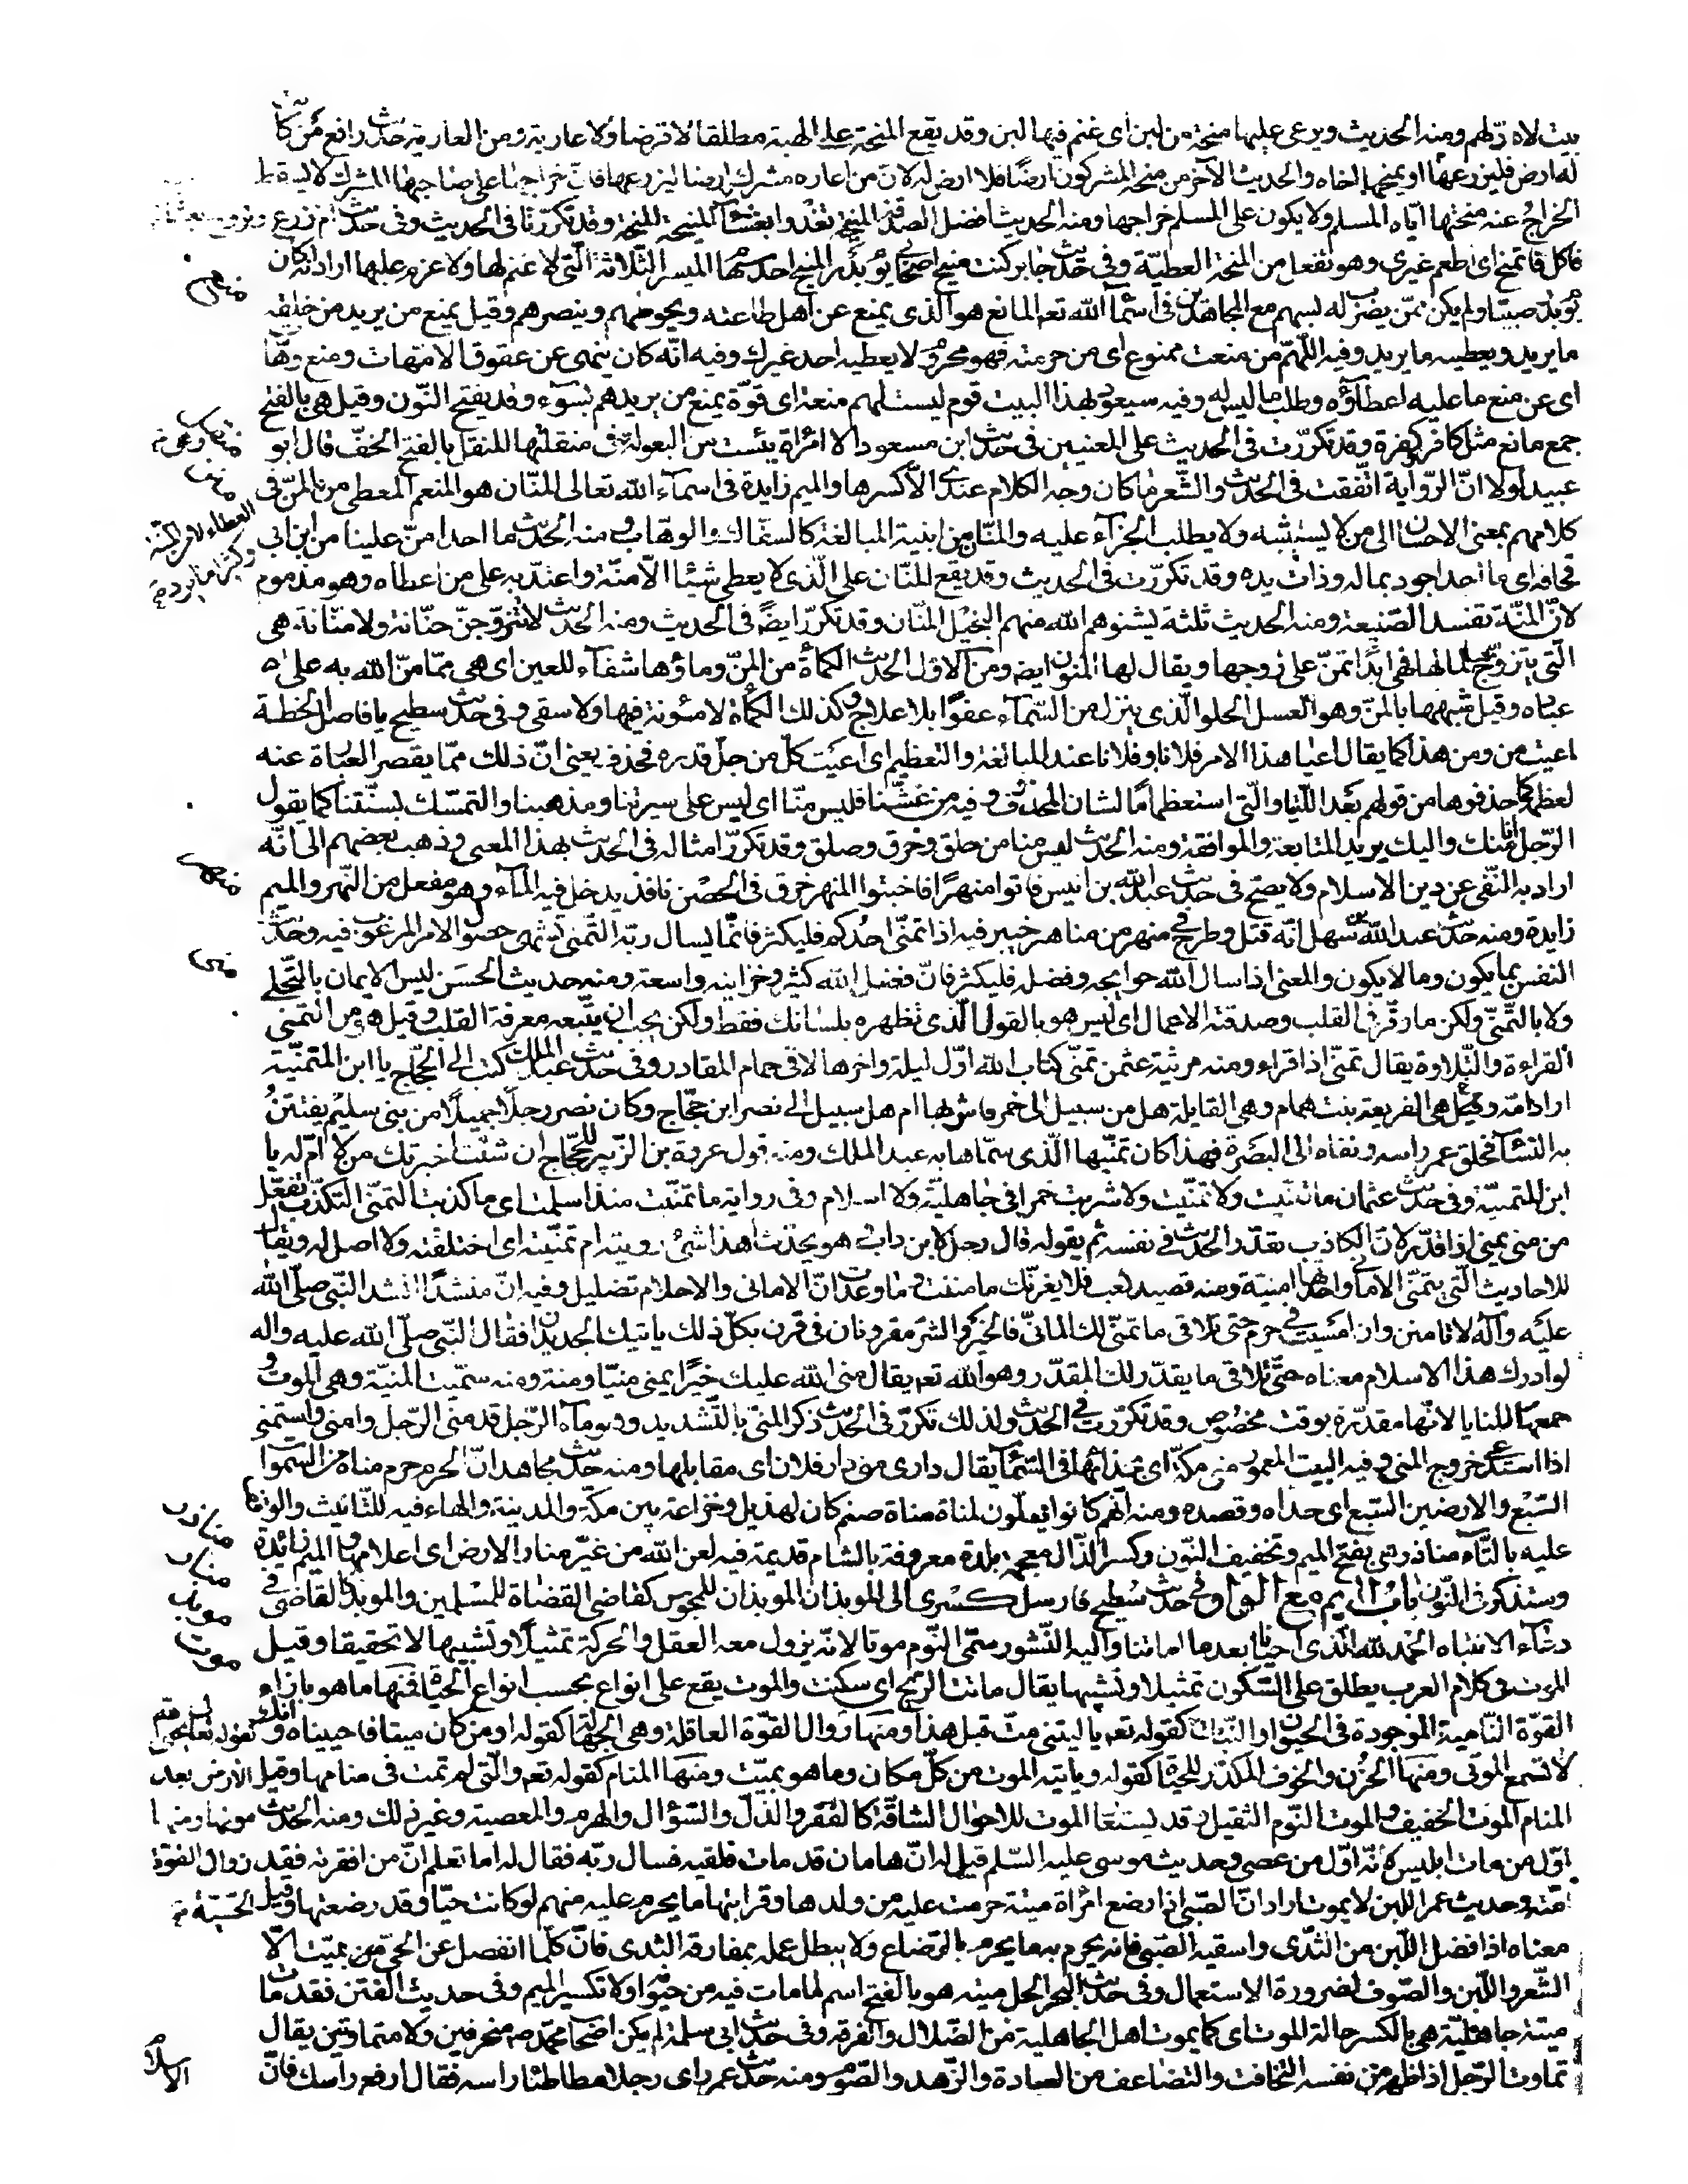 بيت لاه درّلهم ومنه الحديث ويرعى عليها منحة من لبن اى غنم فيها لبن وقد يقع المنحة على الهبة مطلقا لا قرضا ولا عارية ومن العارية حديث رافع من كانت
له ارض فليزرعها او يمنحها اخاه والحديث الآخر من منحه المشركون ارضا فلا ارض له لان من اعاره مشرك ارضا ليزرعها فان خراجها على صاحبها المشرك لا يسقط
الخراج عنه منحتها اياه المسلم ولا يكون على المسلم خراجها ومنه الحديث افضل الصدقة المنيحة تغدوا بعشاء المنيحة المنحة وقد تكررتا فى الحديث وفى حديث ام زرع
فاكل فاتمنح اى اطعم غيرى وهو تفعل من المنحة العطية وفى حديث جابر كنت منيح اصحابى يوم بدر المنيح احد سهام الميسر الثلاثة التى لا غنم لها ولا غرم عليها اراد انه كان
يوم بدر صبيا ولم يكن ممن يضرب له بسهم مع المجاهدين فى اسماء الله تعه المانع هو الذى يمنع عن اهل طاعته ويحوطهم وينصرهم وقيل يمنع من يريد من خلقه
ما يريد ويعطيه ما يريد وفيه اللهم من منعت ممنوع اى من حرمته فهو محروم لا يعطيه احد غيرك وفيه انه كان ينهى عن عقوق الامهات ومنع وهات
اى عن منع ما عليه اعطاؤه وطلب ما ليس له وفيه سيعوذ بهذا البيت قوم ليست لهم منعة اى قوة يمنع من يريدهم بسوء وقد يفتح النون وقيل هى بالفتح
جمع مانع مثل كافر وكفرة وقد تكررت فى الحديث على المعنيين فى حديث ابن مسعود الا امراة يئست من البعولة فهى فى منقلتها المنقل بالفتح الخف قال ابو
عبيد لولا ان الرواية اتفقت فى الحديث والشعر ما كان وجه الكلام عندى الا كسرها والميم زايدة فى اسماء الله تعالى المنان هو المنعم المعطى من المن فى
كلامهم بمعنى الاحسان الى من لا يستثيبه ولا يطلب الجزاء عليه والمنان من ابنية المبالغة كالسفاك والوهاب ومنه الحديث ما احد امن علينا من ابن ابى
قحافة اى ما احد اجود بماله وذات يده وقد تكررت فى الحديث وقد يقع المنان على الذى لا يعطى شيئا الا منة واعتد به على من اعطاه وهو مذموم
لان المنة تفسد الصنيعة ومنه الحديث ثلثة يشنوهم الله منهم البخيل المنان وقد تكرر ايضا فى الحديث ومنه الحديث لا تتزوجن حنانة ولا منانة هى
التى يتزوج بها لمالها فهى ابدا تمن على زوجها ويقال لها المنون ايضا ومن الاول الحديث الكمأة من المن وماؤها شفاء للعين اى هى مما من الله به على
عباده وقيل شبهها بالمن وهو العسل الحلو الذى ينزل من السماء عفوا بلا علاج وكذلك الكمأة لا مئونة فيها ولا سقى وفى حديث سطيح يا فاصل الخطة
اعيت من ومن هذا كما يقال اعيا هذا الامر فلانا وفلانا عند المبالغة والتعظيم اى اعيت كل من جل قدره فحذف يعنى ان ذلك مما يقصر العبارة عنه
لعظمه كما حذفوها من قولهم بعد اللتيا والتى استعظاما لشان المحذوف وفيه من غشنا فليس منا اى ليس على سيرتنا ومذهبنا والتمسك بسنتنا كما يقول
الرجل انا منك واليك يريد المتابعة والموافقة ومنه الحديث ليس منا من حلق وخرق وصلق وقد تكرر امثاله فى الحديث بهذا المعنى وذهب بعضهم الى انه
اراد به النفى عن دين الاسلام ولا يصح فى حديث عبد الله بن انيس فاتوا منهرا فاختبئوا المنهر خرق فى الحصن نافذ يدخل فيه الماء وهو مفعل من النهر والميم
زايدة ومنه حديث عبد الله بن سهل انه قتل وطرح فى منهر من مناهر خيبر فيه اذا تمنى احدكم فليكثر فانما يسال ربه التمنى تشهى حصول الامر المرغوب فيه وحديث
النفس بما يكون وما لا يكون والمعنى اذا سال الله حوايجه وفضله فليكثر فان فضل الله كثير وخزاينه واسعة ومنه حديث الحسن ليس الايمان بالتحلى
ولا بالتمنى ولكن ما وقر فى القلب وصدقته الاعمال اى ليس هو بالقول الذى تظهره بلسانك فقط ولكن يجب ان يتبعه معرفة القلب وقيل هو من التمنى
القراءة والتلاوة يقال تمنى اذا قراء ومنه مرثية عثمن تمنى كتاب الله اول ليلة واخرها لاقى حمام المقادر وفى حديث عبد الملك كتب الى الحجاج يا ابن المتمنية
اراد امه وقيل هى الفريعة بنت همام وهى القايلة هل من سبيل الى خمر فاشربها ام هل سبيل الى نصر ابن حجاج وكان نصر رجلا جميلا من بنى سليم يفتتن
به النساء فحلق عمر راسه ونفاه الى البصرة فهذا كان تمنيها الذى سماها به عبد الملك ومنه قول عروة بن الزبير للحجاج ان شئت اخبرتك من لا ام له يا
ابن المتمنية وفى حديث عثمان ما تغنيت ولا تمنيت ولا شربت خمرا فى جاهلية ولا اسلام وفى رواية ما تمنيت منذ اسلمت اى ما كذبت التمنى التكذب تفعل
من منى يمنى اذا قدر لان الكاذب يقدر الحديث فى نفسه ثم يقوله قال رجل لابن داب وهو يحدث اهذا شئ رويته ام تمنيته اى اختلقته ولا اصل له ويقال
للاحاديث التى يتمنى الامانى واحدها امنية ومنه قصيد كعب فلا يغرنك ما منت وما وعدت ان الامانى والاحلام تضليل وفيه ان منشدا انشد النبى صلى الله
عليه وآله لا تامنن وان امسيت فى حرم حتى تلاقى ما تمنى لك المانى فالخير والشر مقرونان فى قرن بكل ذلك ياتيك الجديدان فقال النبى صلى الله عليه واله
لو ادرك هذا الاسلام معناه حتى تلاقى ما يقدر لك المقدر وهو الله تعه يقال منى الله عليك خيرا يمنى منيا ومنه ومنه سميت المنية وهى الموت و
جمعها المنايا لانها مقدرة بوقت مخصوص وقد تكررت فى الحديث ولذلك تكرر فى الحديث ذكر المنى بالتشديد وهو ماء الرجل قد منى الرجل وامنى واستمنى
اذا استدعى خروج المنى وفيه البيت المعمور منى مكة اى بحذائها فى السماء يقال دارى منى دار فلان اى مقابلها ومنه حديث مجاهد ان الحرم حرم مناه من السموات
السبع والارضين السبع اى حذاه وقصده ومنه انهم كانوا يهلون لمناة مناة صنم كان لهذيل وخزاعة بين مكة والمدينة والهاء فيه للتانيث والوقف
عليه بالتاء مناذر هى بفتح الميم وتخفيف النون وكسر الذال معجمة بلدة معروفة بالشام قديمة فيه لعن الله من غير منار الارض اى اعلامها والميم زائدة
وستذكر فى النون باب الميم مع الواو فى حديث سطيح فارسل كسرى الى الموبذان الموبذان للمجوس كقاضى القضاة للمسلمين والموبذ كالقاضى فى
دعاء الانتباه الحمد لله الذى احيانا بعد ما اماتنا واليه النشور سمى النوم موتا لانه يزول معه العقل والحركة تمثيلا وتشبيها لا تحقيقا وقيل
الموت فى كلام العرب يطلق على السكون تمثيلا وتشبيها يقال ماتت الريح اى سكنت والموت يقع على انواع بحسب انواع الحيوة فمنها ما هو بازاء
القوة النامية الموجودة فى الحيوان او النبات كقوله تعه يا ليتنى مت قبل هذا ومنها زوال القوة العاقلة وهى الجهالة كقوله او من كان ميتا فاحييناه و
لا تسمع الموتى ومنها الحزن والخوف المكدر للحيوة كقوله وياتيه الموت من كل مكان وما هو بميت ومنها المنام كقوله تعه والتى لم تمت فى منامها وقيل
المنام الموت الخفيف والموت النوم الثقيل وقد يستعار الموت للاحوال الشاقة كالفقر والذل والسؤال والهرم والمعصية وغير ذلك ومنه الحديث
اول من مات ابليس لانه اول من عصى وحديث موسى عليه السلم قيل له ان هامان قد مات فلقيه فسال ربه فقال له اما تعلم ان من افقرته فقد
امته وحديث عمر اللبن لا يموت اراد ان الصبى اذا رضع امراة ميتة حرمت عليه من ولدها وقرابتها ما يحرم عليه منهم لو كانت حيا وقد رضعتها وقيل
معناه اذا فصل اللبن من الثدى واسقيه الصبى فانه يحرم به ما يحرم بالرضاع ولا يبطل عمله بمفارقة الثدى فان كلما انفصل عن الحى ميت الا
الشعر واللبن والصوف لضرورة الاستعمال وفى حديث البحر الحل ميتته هو بالفتح اسم لما مات فيه من حيوانه ولا تكسر الميم وفى حديث الفتن فقد مات
ميتة جاهلية هى بالكسر حالة الموت اى كما يموت اهل الجاهلية من الضلال والفرقة وفى حديث ابى سلمة لم يكن اصحاب محمد صم متحرفين ولا متماوتين يقال
تماوت الرجل اذا اظهر من نفسه التخافت والتضاعف من العبادة والزهد والصوم ومنه حديث عمر راى رجلا مطاطئا راسه فقال ارفع راسك فان
الاسلام